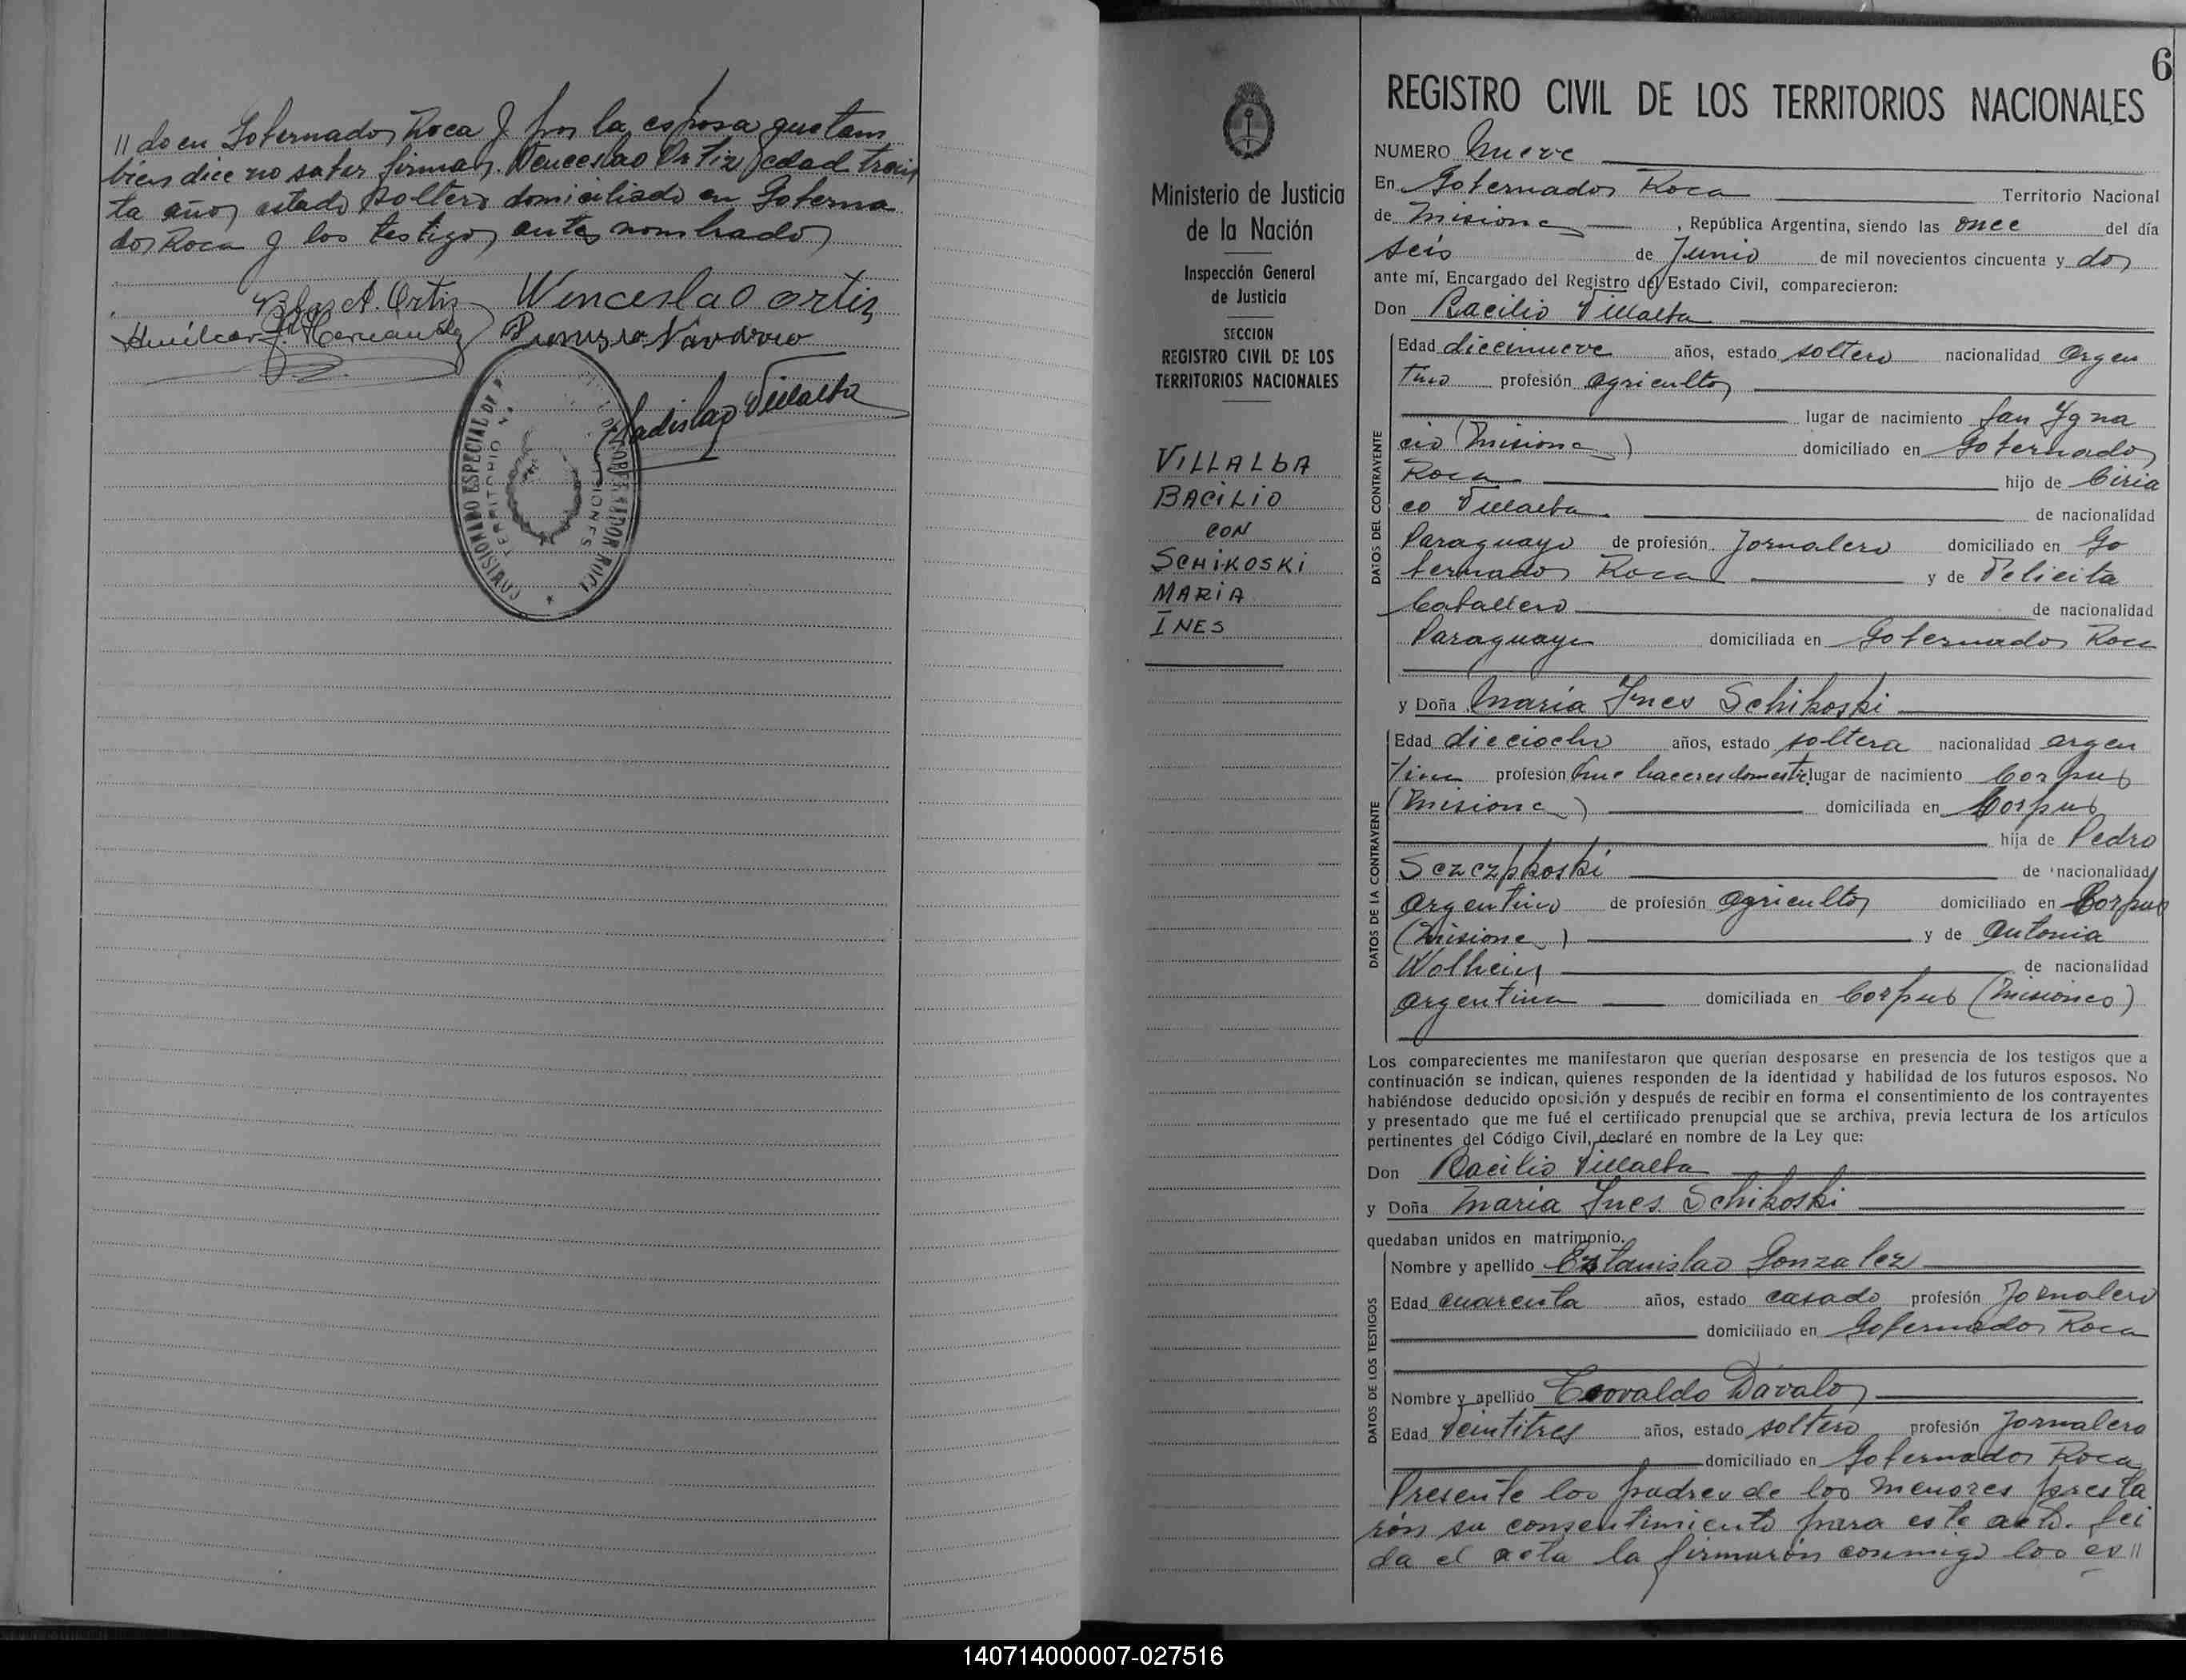 // do en Gobernador Roca y por la esposa que tam
bien dice no saber firmar. Venceslao Ortiz edad trein
ta años estado soltero domiciliado en Goberna
dor Roca y los testigos antes nombrados
A. Ortiz Wenceslao ortiz
Navarro
Ladislao Villalba
COMISIONADO ESPECIAL DE GOBERNADOR ROCA
TERRITORIO N. MISIONES
6
REGISTRO CIVIL DE LOS TERRITORIOS NACIONALES
Ministerio de Justicia
de la Nación
Inspección General
de Justicia
SECCION
REGISTRO CIVIL DE LOS
TERRITORIOS NACIONALES
VILLALBA
BACILIO
CON
SCHIKOSKI
MARIA
INES
NUMERO Nueve
En Gobernador Roca Territorio Nacional
de Misiones, República Argentina, siendo las once del día
seis de Junio de mil novecientos cincuenta y dos
ante mí, Encargado del Registro del Estado Civil, comparecieron:
Don Bacilio Villalba
DATOS DEL CONTRAYENTE
Edad diecinueve años, estado soltero nacionalidad Argen
tino profesión agricultor
lugar de nacimiento San Ygna
cio (Misiones) domiciliado en Gobernador
Roca hijo de Ciria
co Villalba de nacionalidad
Paraguayo de profesión Jornalero domiciliado en Go
bernador Roca y de Felicita
Caballero de nacionalidad
Paraguaya domiciliada en Gobernador Roca
y Doña María Ines Schikoski
DATOS DE LA CONTRAYENTE
Edad dieciocho años, estado soltera nacionalidad argen
tina profesión Que haceres domestic lugar de nacimiento Corpus
(Misiones) domiciliada en Corpus
hija de Pedro
Sczczpkoski de nacionalidad
argentino de profesión agricultor domiciliado en Corpus
(Misiones) y de Antonia
Wolhein de nacionalidad
argentina domiciliada en Corpus (Misiones)
Los comparecientes me manifestaron que querían desposarse en presencia de los testigos que a
continuación se indican, quienes responden de la identidad y habilidad de los futuros esposos. No
habiéndose deducido oposición y después de recibir en forma el consentimiento de los contrayentes
y presentado que me fué el certificado prenupcial que se archiva, previa lectura de los artículos
pertinentes del Código Civil, declaré en nombre de la Ley que:
Don Bacilio Villalba
y Doña Maria Ines Schikoski
quedaban unidos en matrimonio.
DATOS DE LOS TESTIGOS
Nombre y apellido Estanislao Gonzalez
Edad cuarenta años, estado casado profesión Jornalero
domiciliado en Gobernador Roca
Nombre y apellido Dávalos
Edad Veintitres años, estado soltero profesión Jornalero
domiciliado en Gobernador Roca
Presente los padres de los menores presta
rón su consentimiento para este acto. Lei
da el acta la firmarón conmigo los es //
140714000007-027516